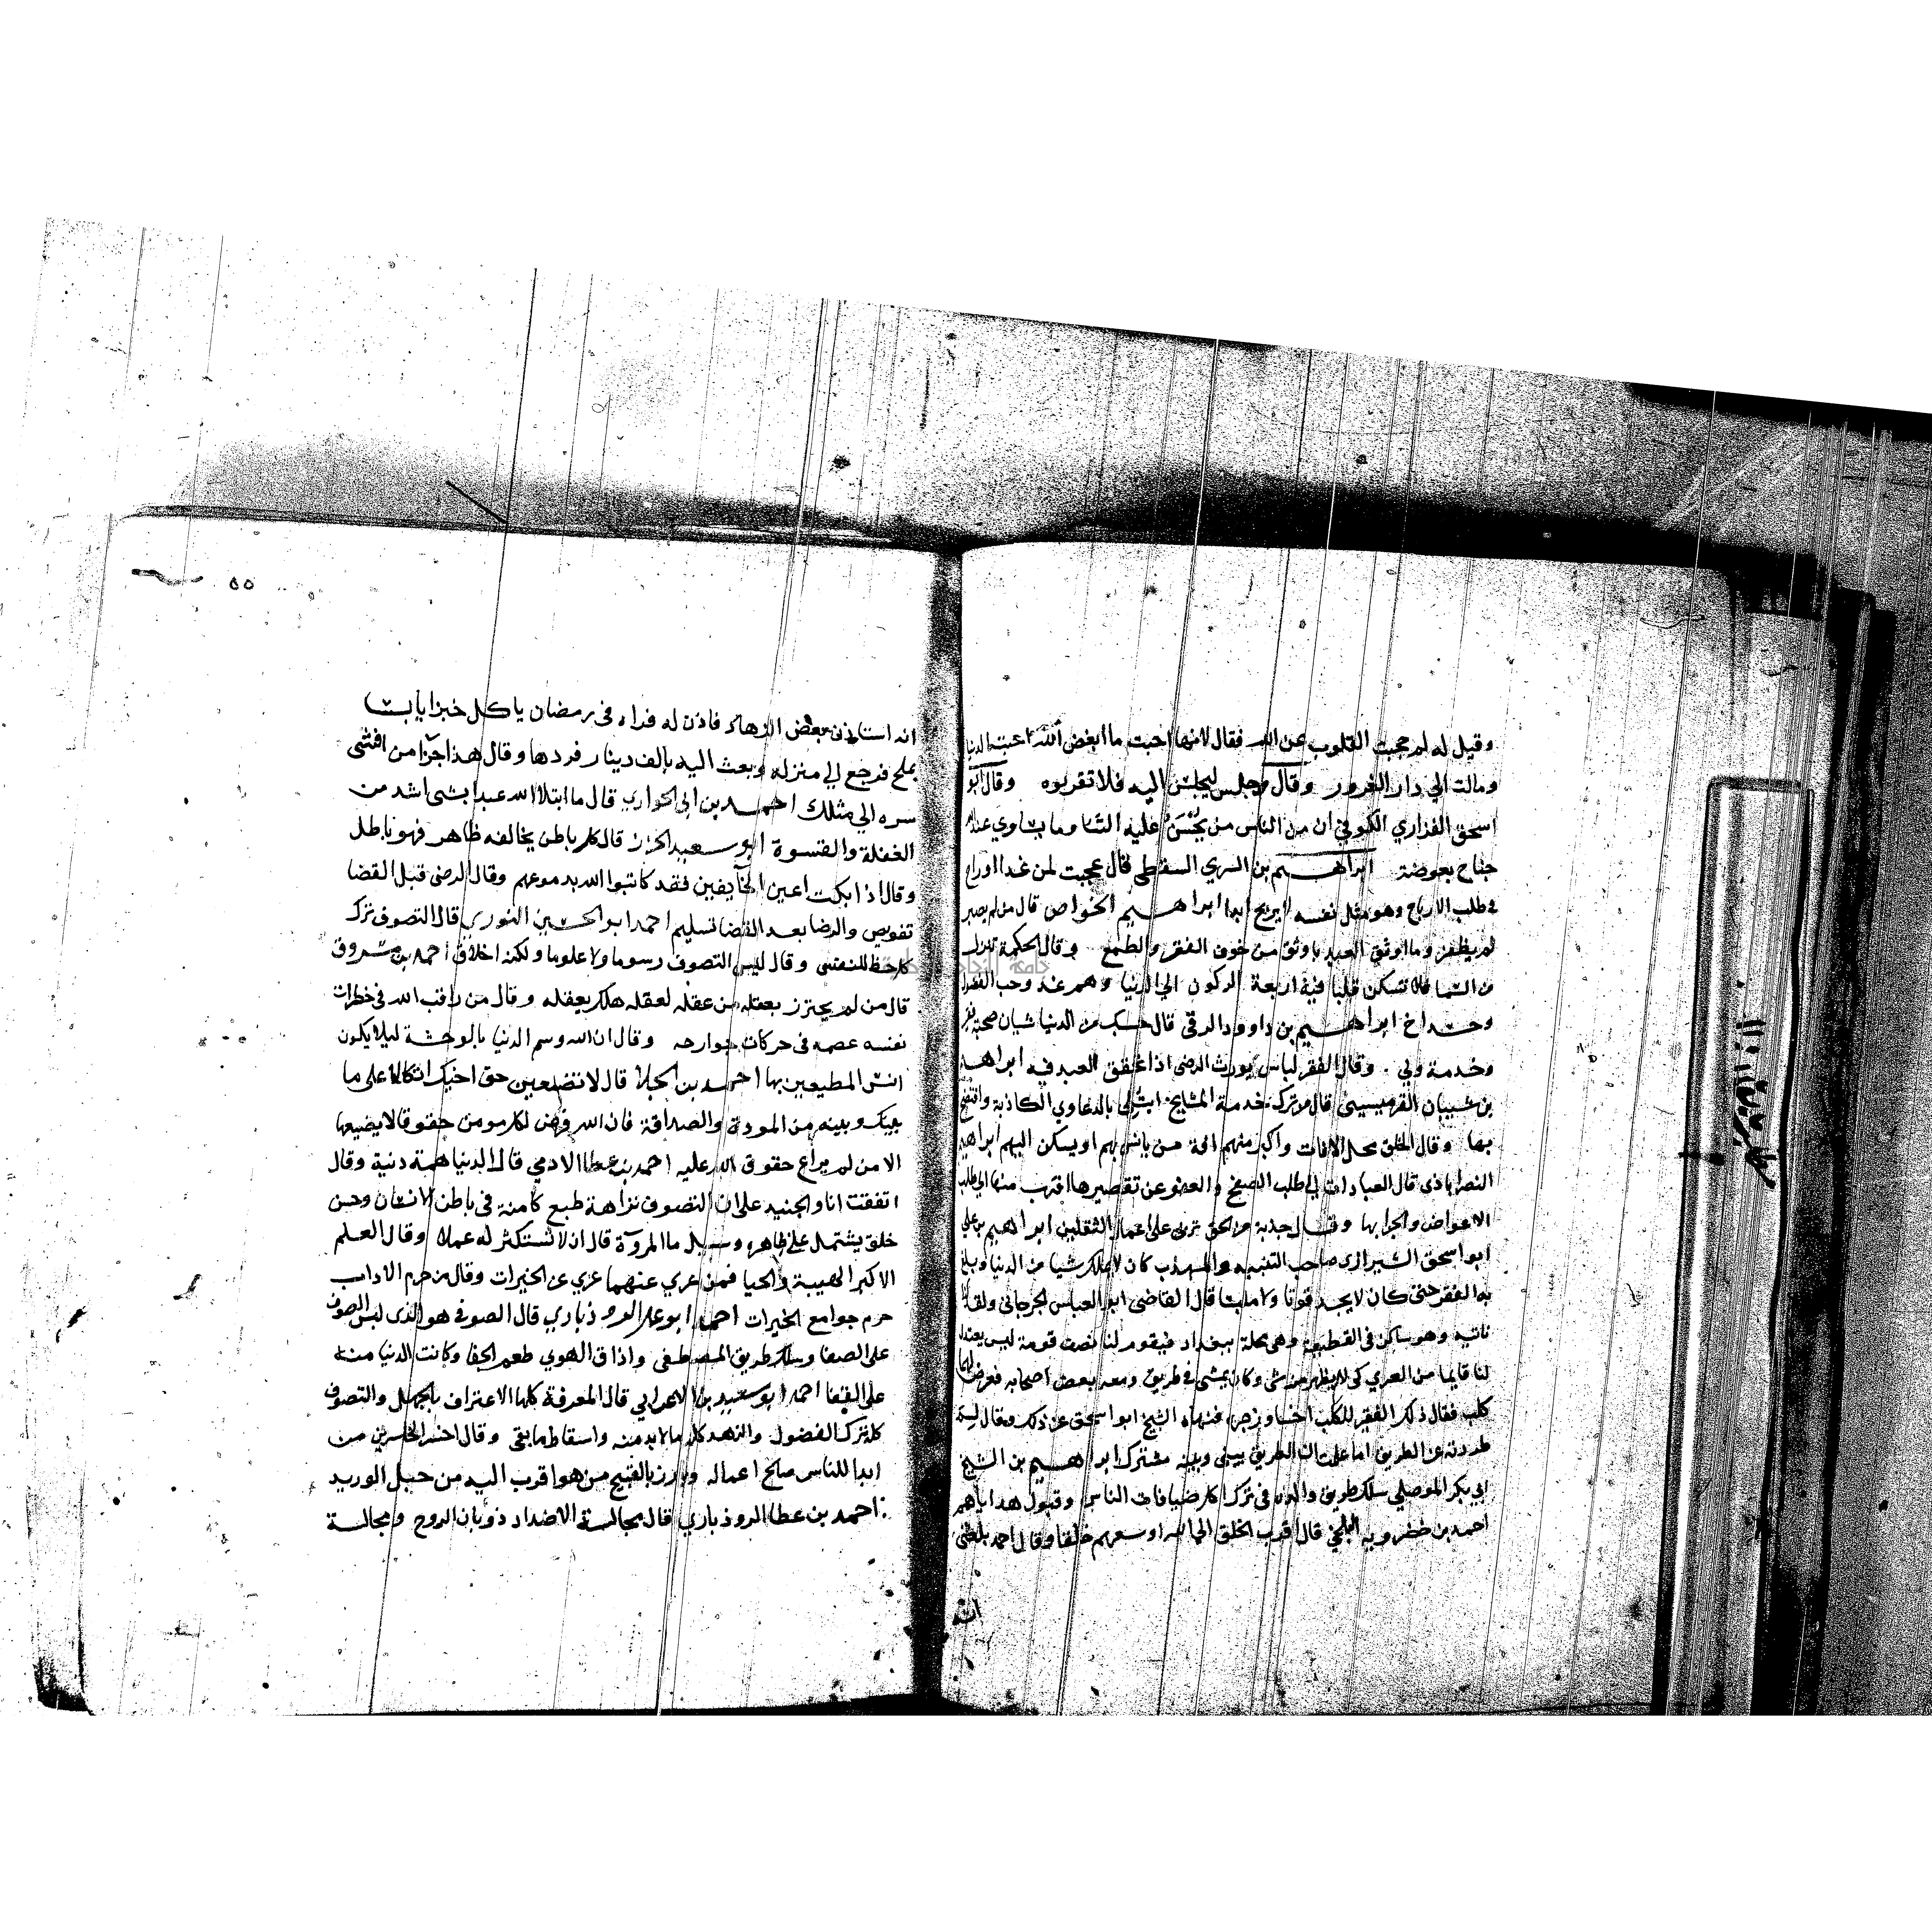 وقيل له لم حجبت القلوب عن الله فقال لانها احبت ما ابغض الله احبت الدنيا
ومالت الي دار الغرور وقال مجلس ليجلس اليه فلا تقربوه وقال ابو
اسحق الفزاري الكوفي ان من الناس من يحسن عليه الثنا وما يساوي عند الله
جناح بعوضة ابراهيم بن السري السقطي قال عجبت لمن غدا اوراح
في طلب الارباح وهو مثل نفسه لا يربح ابدا ابراهيم الخواص قال من لم يصبر
لم يظفر وما اوثق العبد باوثق من خوف الفقر والطمع وقال الحكمة تنزل
من السما فلا تسكن قلبا فيه اربعة الركون الي الدنيا وهم غد وحب الفضول
وحسد اخ ابراهيم بن داوود الرقي قال حسبك من الدنيا شيان صحبة فقير
وخدمة ولي وقال الفقر لباس يورث الرضى اذا تحقق العبد فيه ابراهيم
بن شيبان القرميسيني قال من ترك خدمة المشايخ ابتلي بالدعاوي الكاذبة وافتضح
بها وقال الخلق محل الافات واكبر منهم افة من يانس بهم او يسكن اليهم ابراهيم
النصراباذى قال العبادات الي طلب الصفح والعفو عن تقصيرها اقرب منها الي طلب
الاعواض والجزا بها وقال جذبة من الحق تربى على اعمال الثقلين ابراهيم بن علي
ابو اسحق الشيرازي صاحب التنبيه والمهذب كان لا يملك شيا من الدنيا وبلغ
به الفقر حتى كان لا يجد قوتا ولا ملبسا قال القاضي ابو العباس الجرجاني ولقد كنا
ناتيه وهو ساكن في القطيعة وهي محلة ببغداد فيقوم لنا نصف قومة ليس يعتدل
لنا قايما من العري كي لا يظهر منه شى وكان يمشى في طريق ومعه بعض اصحابه فعرض لهما
كلب فقال ذلك الفقير للكلب اخسا وزجره فنهاه الشيخ ابو اسحق عن ذلك وقال لم
طردته عن الطريق اما علمت ان الطريق بيني وبينه مشترك ابراهيم بن الشيخ
ابي بكر الموصلي سلك طريق والده في ترك اكل ضيافات الناس وقبول هداياهم
احمد بن خضرويه البلخي قال اقرب الخلق الي الله اوسعهم خلقا وقال احمد بلغني
انه
٥٥
انه استاذن بعض الزهاد فاذن له فراه في رمضان ياكل خبزا يابسا
بملح فرجع الي منزله وبعث اليه بالف دينار فردها وقال هذا جزا من افشى
سره الي مثلك احمد بن ابي الحواري قال ما ابتلا الله عبدا بشى اشد من
الغفلة والقسوة ابو سعيد الخراز قال كل باطن يخالفه ظاهر فهو باطل
وقال اذا بكت اعين الخايفين فقد كاتبوا الله بدموعهم وقال الرضى قبل القضا
تفويض والرضا بعد القضا تسليم احمد ابو الحسين النوري قال التصوف ترك
كل حظ للنفس وقال ليس التصوف رسوما ولا علوما ولكنه اخلاق احمد بن مسروق
قال من لم يحترز بعقله من عقله لعقله هلك بعقله وقال من راقب الله في خطرات
نفسه عصمه في حركات جوارحه وقال ان الله وسم الدنيا بالوحشة ليلا يكون
انس المطيعين بها احمد بن الجلا قال لا تضيعن حق اخيك اتكالا على ما
بينك وبينه من المودة والصداقة فان الله فرض لكل مومن حقوقا لا يضيعها
الا من لم يراع حقوق الله عليه احمد بن عطا الادمي قال الدنيا همة دنية وقال
اتفقت انا والجنيد على ان التصوف نزاهة طبع كامنة في باطن الانسان وحسن
خلق يشتمل على ظاهره وسيل ما المروة قال ان لا تستكثر له عملا وقال العلم
الاكبر الهيبة والحيا فمن عري عنهما عري عن الخيرات وقال من حرم الاداب
حرم جوامع الخيرات احمد ابو علي الروذباري قال الصوفي هو الذى لبس الصوف
على الصفا وسلك طريق المصطفى واذاق الهوي طعم الجفا وكانت الدنيا منه
على القفا احمد ابو سعيد بن الاعرابي قال المعرفة كلها الاعتراف بالجهل والتصوف
كله ترك الفضول والزهد كله ما لا بد منه واسقاط ما بقى وقال اخسر الخاسرين من
ابدا للناس صالح اعماله وبارز بالقبيح من هو اقرب اليه من حبل الوريد
احمد بن عطا الروذباري قال مجالسة الاضداد ذوبان الروح ومجالسة